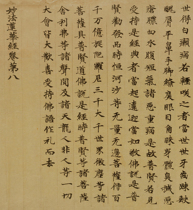 世得白癩病若有輕咲者當世世牙齒疎缺
醜脣平鼻手脚繚戾眼目角睞身體臭穢惡
瘡膿血水腹短氣諸惡重病是故普賢若見
受持是經典者當起遠迎當如敬佛說是普
賢勸發品時恒河沙等無量無邊菩薩得百
千萬億旋陀羅尼三千大千世界微塵等諸
菩薩具普賢道佛說是經時普賢等諸菩薩
舍利弗等諸聲聞及諸天龍人非人等一切
大會皆大歡喜受持佛語作礼而去
妙法蓮華經卷第八